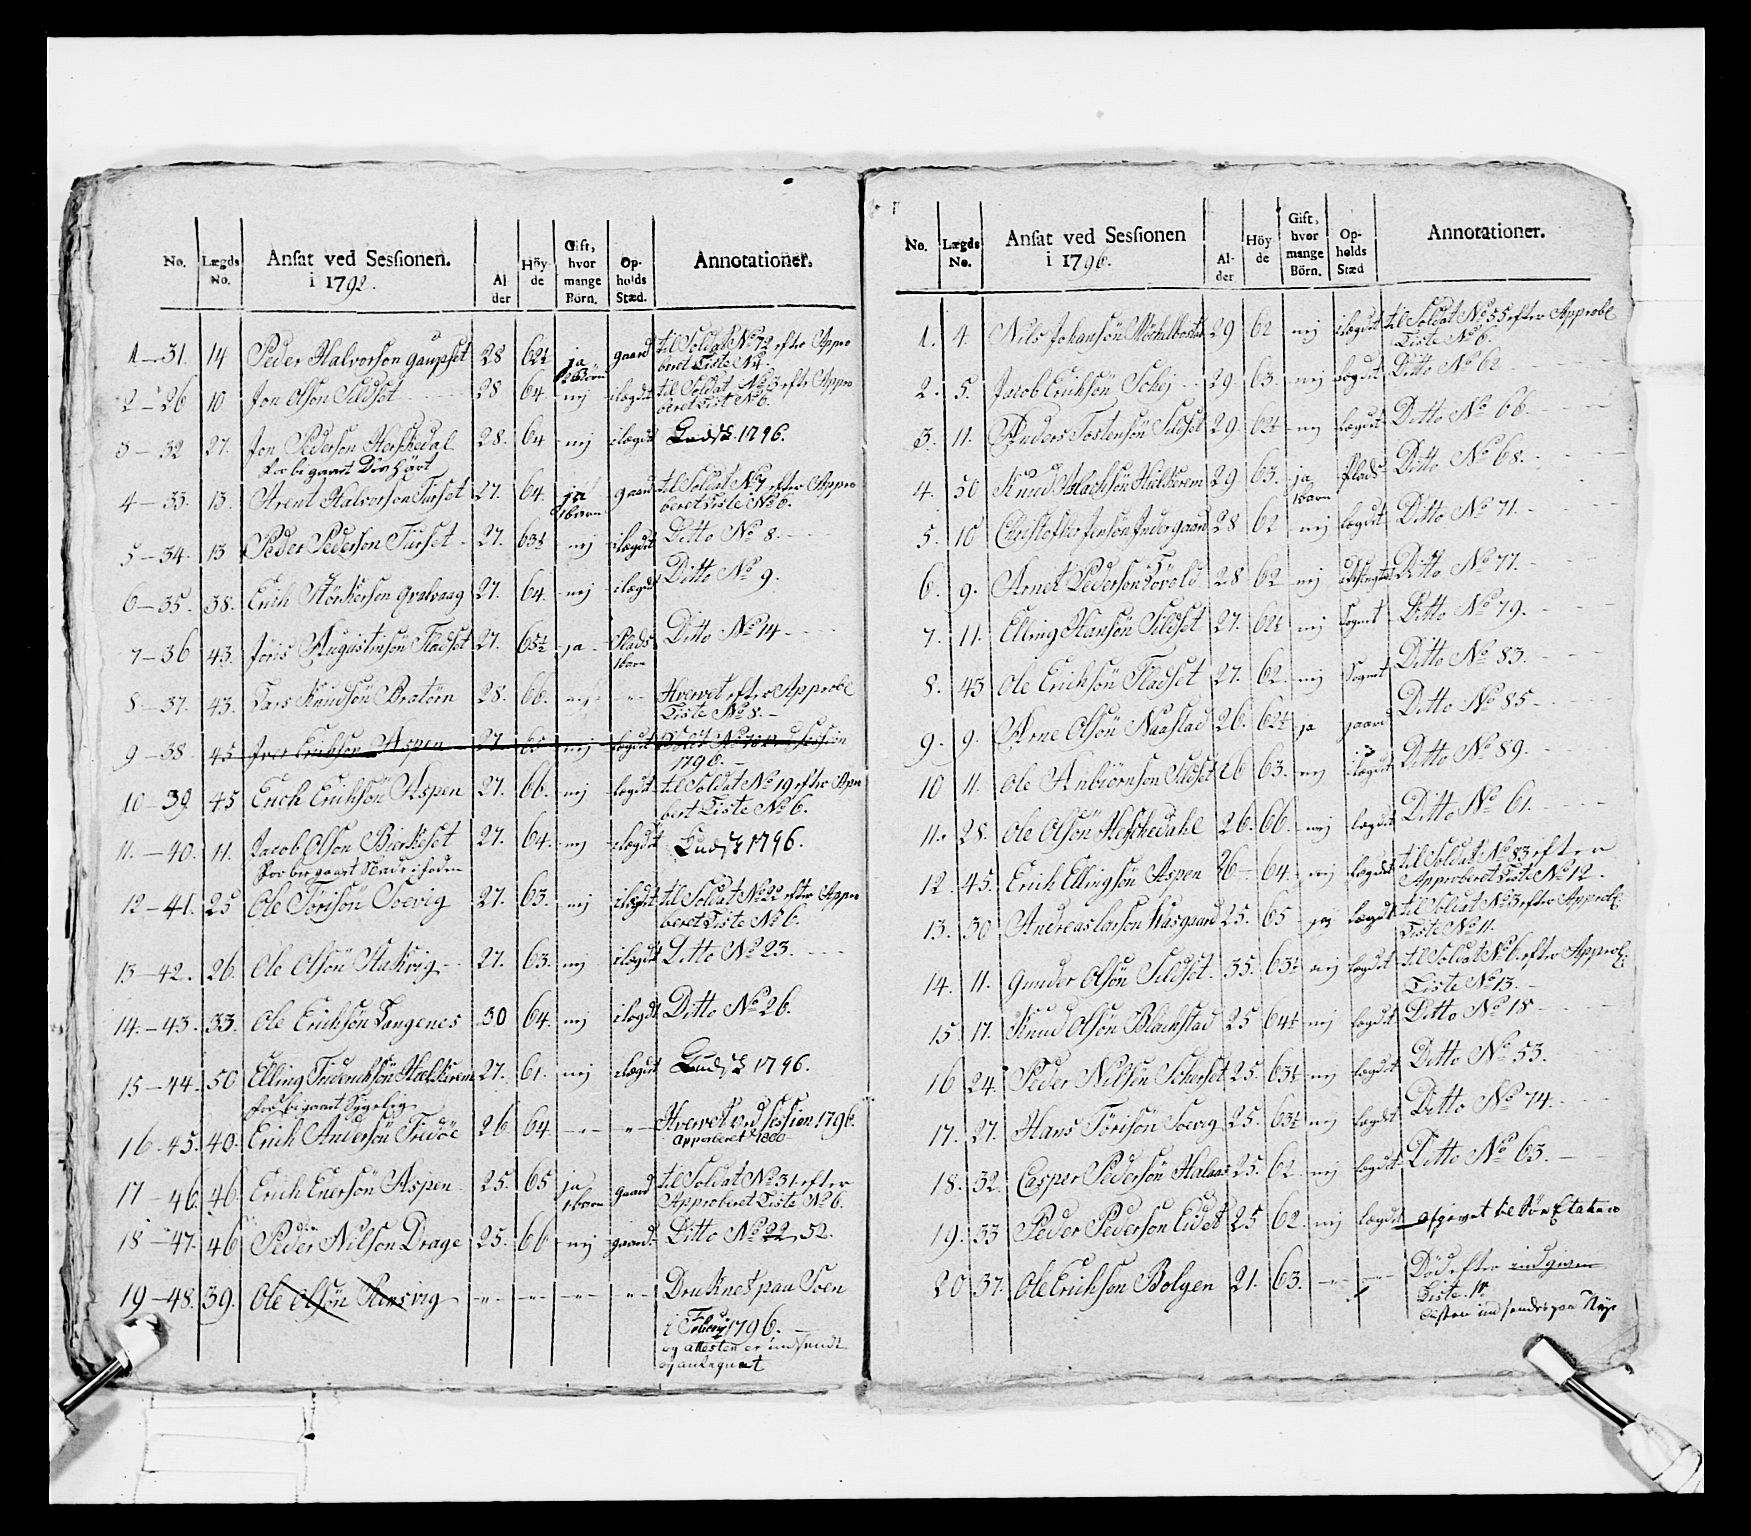 No. Lægds No. Ansat ved Sessionen. i 1792. Al der Höy- de Gift, hvor mange Börn. Op- holds Stæd. Annotationer.
1-31. 14 Peder Halvorson Gaupset 28 62½ ja 2 Börn gaard til Soldat No 72 efter Appro
beret Liste No 4.
2-26 10 Jon Olson Sildset 28 64 nej i lægdet til Soldat No 3 efter Appro
beret List No 6.
3-32 27. Jon Pederson Herskedal 28. 64 nej i lægdet Landst. 1796.
forbigaaet Döv hört
4-33. 13. Arent Halvorson Turset 27. 64. ja 1 barn gaard til Soldat No 7 efter Appro
beret Liste No 6.
5-34. 13 Peder Pederson Turset 27. 63½ nej i lægdet Ditto No 8.
6-35. 38. Erich Storkerson Gralvaag 27. 64. nej i lægdet Ditto No 9.
7-36 43. Jöris Augustinson Fladset 27. 65½ ja Plads 1 barn Ditto No 14
8-37. 43. Lars Knudsön Bratörn 28. 66. nej " Hvervet efter Approbe
Liste No 8.
9-38 45 Iver Erichson Aspen 27. 65 nej lægdet Sold. No 18 ved session
1796.
10-39 45 Erich Erichsön Aspen 27. 66. nej lægdet til Soldat No 19 efter Apro
beret Liste No 6.
11.-40. 11. Jacob Olson Birkeset 27. 64. nej i lægdet Landst 1796.
forbigaaet Skade i foden
12-41. 25 Ole Törisön Soevig 27. 63. nej i lægdet til Soldat No 22 efter Appro
beret Liste No 6.
13-42. 26. Ole Olsön Stakvig 27. 63. nej i lægdet Ditto No 23.
14.-43. 33. Ole Erichsön Langenes 30 64. nej i lægdet Ditto No 26.
15-44. 50 Elling Frederichsön Hækkerem 27. 61. nej i lægdet Landst 1796.
forbigaaet Sygelig
16-45. 40. Erich Andersön Fredöe 26 64 -"- " Hvervet ved session 1796.
Approberet 1800
17-46. 46 Erich Enersön Aspen 25. 65 ja 1 barn gaard til Soldat No 31 efter
Approberet Liste No 6.
18-47. 46 Peder Nilson Drage 25. 66 nej gaard. Ditto No 22, 52.
19-48. 39. Ole Olsön Stensvig -"- -"- -"- -"- Druknet paa Soen
i Febuary 1796.
og attesten er indsendt
og antegnet
No. Lægds No. Ansat ved Sessionen i 1796. Al- der Höy de Gift, hvor mange Börn. Op- holds Stæd Annotationer.
1. 4. Nils Johansön 29 62 nej i lægdet til Soldat No 55 efter Approbe
Liste No 6.
2. 5. Jacob Erichsön Schej 29 63. nej lægdet Ditto No 62
3. 11. Anders Tostensön Sildset 29. 62½ nej lægdet Ditto No 66.
4. 50 Knud Isachsön Hækkerem 29 63. ja 1 barn Plads Ditto No 68.
5. 10 Christoffer Jenson Indergaard 28 62 nej lægdet Ditto No 71.
6. 9. Arnet Pederson Tövold 28 62 nej Ditto No 77.
7. 11. Elling Hansön Sildset 27. 62½ nej Sognet Ditto No 79.
8. 43 Ole Erichsön Fladset 27. 62. nej Sognet Ditto No 83.
9. 9. Arne Olsön Naastad 26. 62½ ja gaard Ditto No 85
10 11. Ole Anbiörnson Sildset 26 63. nej i lægdet Ditto No 89.
11. 28. Ole Olsön Herskedahl 26. 66. nej lægdet Ditto No 61.
12. 45. Erich Ellingsön Aspen 26 64. nej lægdet til Soldat No 83 efter
Approberet Liste No 12.
13. 30 Andreas Larson Waagaard 25. 65 nej lægdet til Soldat No 3 efter Approbe
Liste No 11.
14. 11. Gunder Olsön Sildset. 35. 63½ nej lægdet til Soldat No 6. efter Approbe
Liste No 13.
15 17. Knud Olsön Blachstad 25 64½ nej lægdet Ditto No 18
16 24. Peder Nilson Scherset 25. 63½ nej lægdet Ditto No 53.
17. 27. Hans Törisön Soevig 25. 63½ nej lægdet Ditto No 74.
18. 32. Casper Pedersön Halaas 25. 62 nej lægdet Ditto No 63.
19. 33 Peder Pederson Eidet 25 62. nej lægdet afgivet til Söe Etaten
20 37. Ole Erichson Bolgen 21. 63. -"- -"- Död efter indgiven
Liste.
Listen indsendes paa Nye